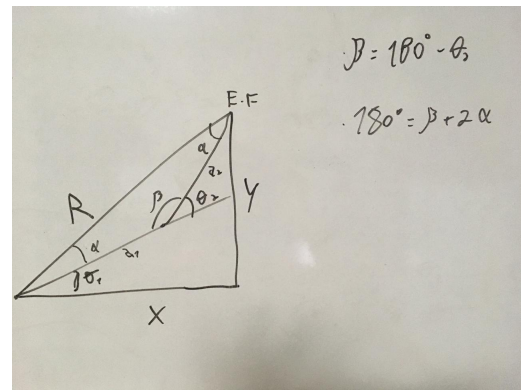 β = 180° - θ₂
180° = β + 2α
E.F
α
a₂
R
β
θ₂
y
α
a₁
θ₁
X